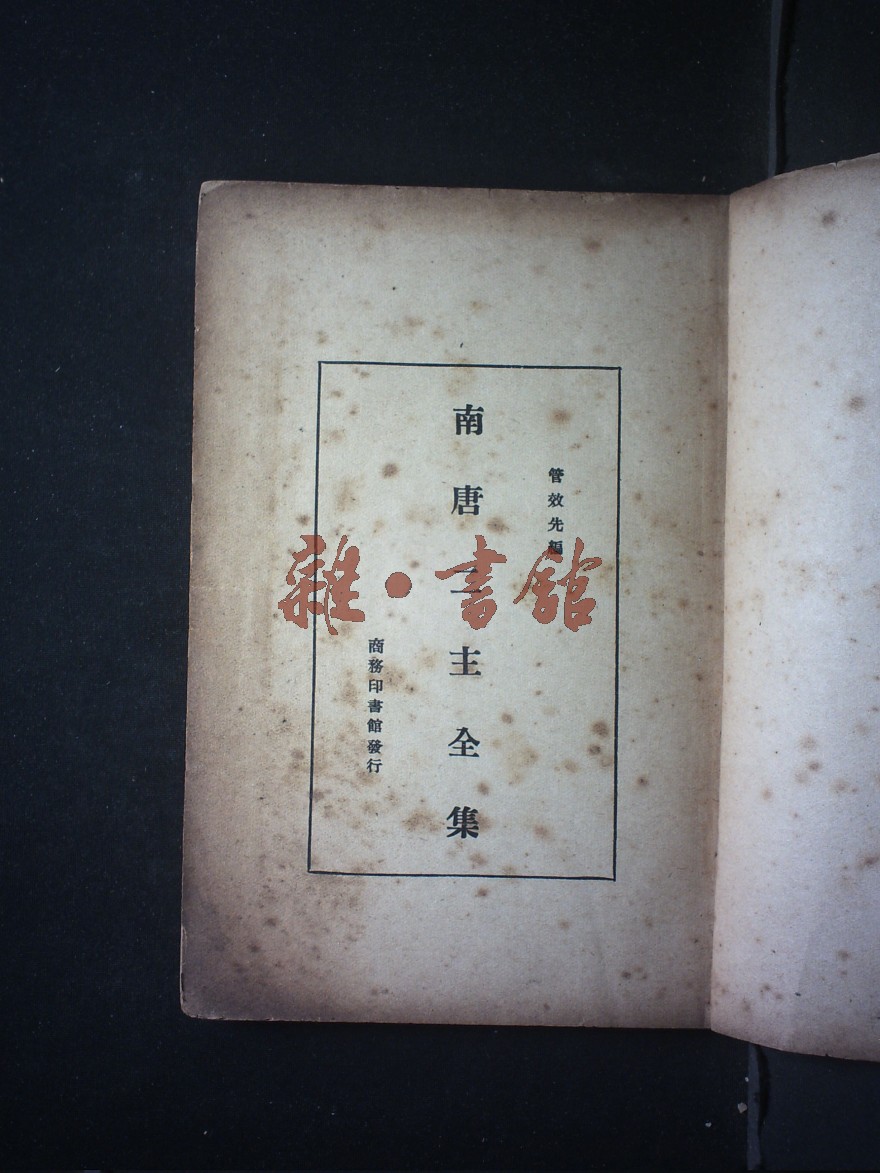 管效先編
南唐二主全集
商務印書館發行
雜·書館